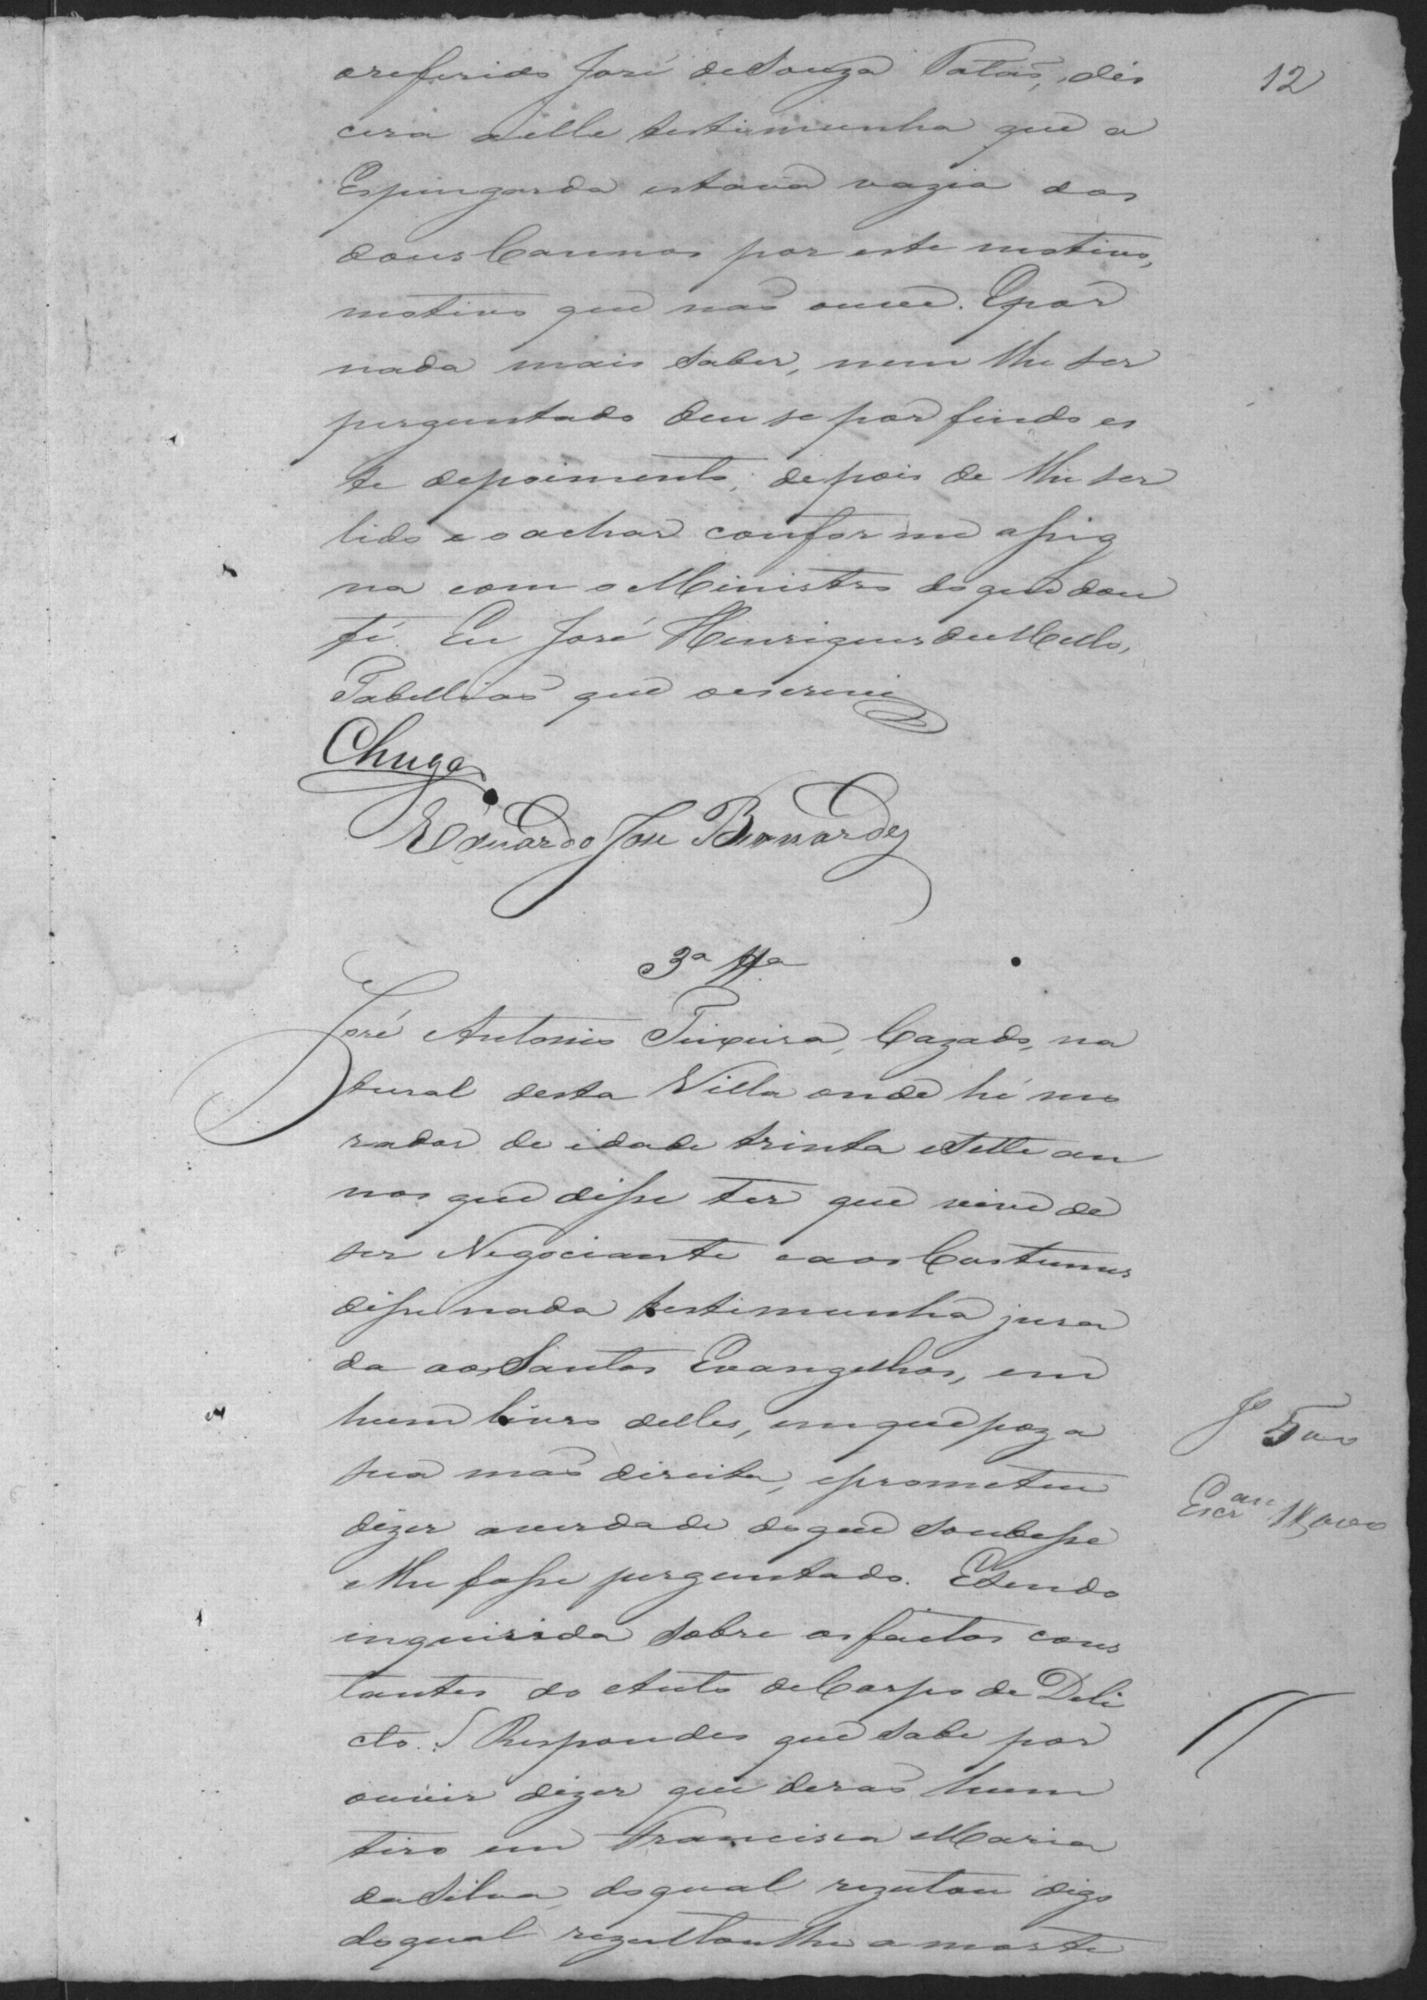 12
oreferido José de Souza Fatão, dis
cera a elle testimunha que a
Espingarda estava vazia dos
dous Cannos por este motivo,
motivo que não ouve. E por
nada mais saber, nem lhe ser
perguntado deu se por findo es
te depoimento; depois de lhe ser
lido e o achar conforme assig
na com o Ministro do que dou
fé. Eu José Henriques de Mello,
Tabellião que o escrevi
Chuga
Eduardo Jose Bernardes
3ª Tª
José Antonio Teixeira, Cazado, na
tural desta Villa onde hé mo
rador de idade trinta e Sette an
nos que disse ter que vive de
ser Negociante e aos Costumes
disse nada testimunha jura
da aos Santos Evangelhos, em
hum livro delles, em que poz a
sua mão direita, e prometeu
dizer averdade do que Soubesse
e lhe fosse perguntado. E Sendo
inquirida Sobre os factos cons
tantes do Auto de Corpo de Deli
cto. Respondeo que Sabe por
ouvir dizer que derão hum
tiro em Francisca Maria
da Silva, do qual rezutou digo
do qual rezultou lhe a morte
Jº 500
Escram 1$000